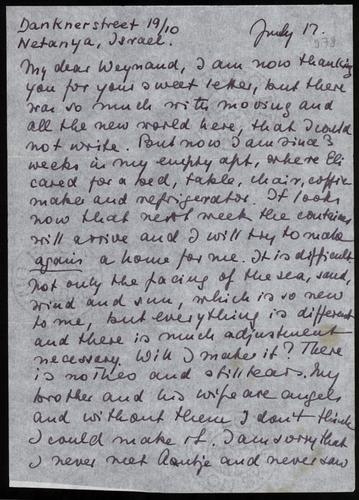 Danknerstreet 19/10
Netanya, Israel.
July 17.
My dear Weynand, I am now thanking
you for your sweet letter, but there
was so much with moving and
all the new world here, that I could
not write. But now I am since 3
weeks in my empty apt, where Eli
cared for a bed, table, chair, coffie
maker and refrigerator. It looks
now that next week the container
will arrive and I will try to make
again a home for me. It is difficult
not only the facing of the sea, sand,
wind and sun, which is so new
to me, but everything is different
and there is much adjustment
necessary. Will I make it? There
is no Theo and still tears. My
brother and his wife are angels
and without them I don't think
I could make it. I am sorry that
I never met Aantje and never saw